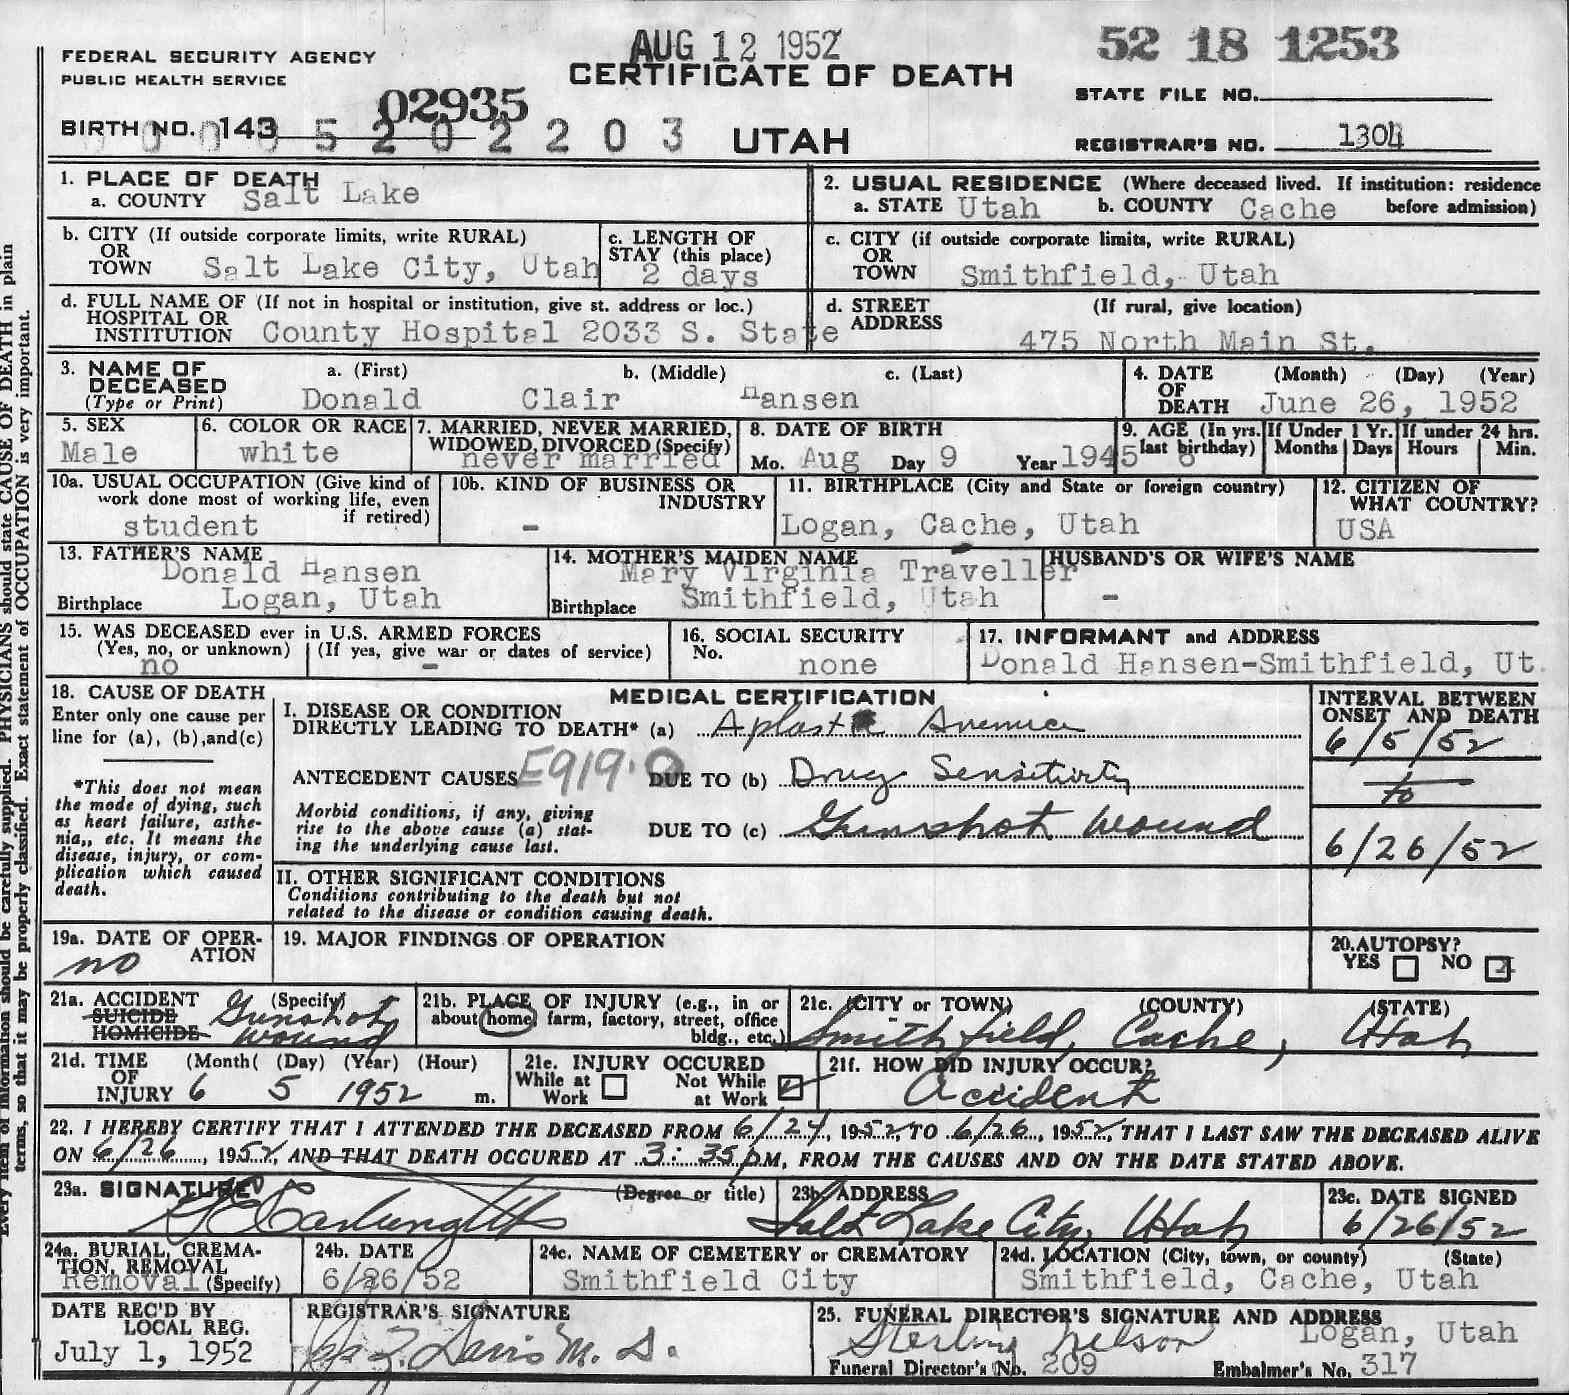 AUG 12 1952
52 18 1253
FEDERAL SECURITY AGENCY
PUBLIC HEALTH SERVICE
CERTIFICATE OF DEATH
STATE FILE NO.
02935
BIRTH NO. 143 5 2 0 2 2 0 3
UTAH
REGISTRAR'S NO. 1304
1. PLACE OF DEATH
a. COUNTY Salt Lake
2. USUAL RESIDENCE (Where deceased lived. If institution: residence before admission)
a. STATE Utah b. COUNTY Cache
b. CITY (If outside corporate limits, write RURAL)
OR
TOWN Salt Lake City, Utah
c. LENGTH OF
STAY (this place)
2 days
c. CITY (if outside corporate limits, write RURAL)
OR
TOWN Smithfield, Utah
d. FULL NAME OF (If not in hospital or institution, give st. address or loc.)
HOSPITAL OR
INSTITUTION County Hospital 2033 S. State
d. STREET (If rural, give location)
ADDRESS 475 North Main St.
3. NAME OF DECEASED
(Type or Print)
a. (First) b. (Middle) c. (Last)
Donald Clair Hansen
4. DATE (Month) (Day) (Year)
OF
DEATH June 26, 1952
5. SEX
Male
6. COLOR OR RACE
white
7. MARRIED, NEVER MARRIED,
WIDOWED, DIVORCED (Specify)
never married
8. DATE OF BIRTH
Mo. Aug Day 9 Year 1945
9. AGE (In yrs. last birthday) 6
If Under 1 Yr.
Months Days
If under 24 hrs.
Hours Min.
10a. USUAL OCCUPATION (Give kind of
work done most of working life, even
if retired)
student
10b. KIND OF BUSINESS OR
INDUSTRY
-
11. BIRTHPLACE (City and State or foreign country)
Logan, Cache, Utah
12. CITIZEN OF
WHAT COUNTRY?
USA
13. FATHER'S NAME
Donald Hansen
Birthplace Logan, Utah
14. MOTHER'S MAIDEN NAME
Mary Virginia Traveller
Birthplace Smithfield, Utah
HUSBAND'S OR WIFE'S NAME
-
15. WAS DECEASED ever in U.S. ARMED FORCES
(Yes, no, or unknown) (If yes, give war or dates of service)
no -
16. SOCIAL SECURITY
No. none
17. INFORMANT and ADDRESS
Donald Hansen-Smithfield, Ut.
18. CAUSE OF DEATH
Enter only one cause per
line for (a), (b), and (c)
*This does not mean
the mode of dying, such
as heart failure, asthe-
nia,, etc. It means the
disease, injury, or com-
plication which caused
death.
MEDICAL CERTIFICATION
I. DISEASE OR CONDITION
DIRECTLY LEADING TO DEATH* (a) Aplastic Anemia
ANTECEDENT CAUSES E919.0 DUE TO (b) Drug Sensitivity
Morbid conditions, if any, giving
rise to the above cause (a) stat-
ing the underlying cause last.
DUE TO (c) Gunshot Wound
INTERVAL BETWEEN
ONSET AND DEATH
6/5/52
to
6/26/52
II. OTHER SIGNIFICANT CONDITIONS
Conditions contributing to the death but not
related to the disease or condition causing death.
19a. DATE OF OPER-
ATION
no
19. MAJOR FINDINGS OF OPERATION
20. AUTOPSY?
YES NO
21a. ACCIDENT (Specify)
SUICIDE
HOMICIDE
Gunshot
wound
21b. PLACE OF INJURY (e.g., in or
about home, farm, factory, street, office
bldg., etc.)
21c. (CITY or TOWN) (COUNTY) (STATE)
Smithfield, Cache, Utah
21d. TIME (Month( (Day) (Year) (Hour)
OF
INJURY 6 5 1952 m.
21e. INJURY OCCURED
While at Work Not While at Work
21f. HOW DID INJURY OCCUR?
Accident
22. I HEREBY CERTIFY THAT I ATTENDED THE DECEASED FROM 6/24, 1952, TO 6/26, 1952, THAT I LAST SAW THE DECEASED ALIVE
ON 6/26, 1952, AND THAT DEATH OCCURED AT 3:35 PM, FROM THE CAUSES AND ON THE DATE STATED ABOVE.
23a. SIGNATURE (Degree or title)
23b. ADDRESS
Salt Lake City, Utah
23c. DATE SIGNED
6/26/52
24a. BURIAL, CREMA-
TION, REMOVAL
Removal (Specify)
24b. DATE
6/26/52
24c. NAME OF CEMETERY or CREMATORY
Smithfield City
24d. LOCATION (City, town, or county) (State)
Smithfield, Cache, Utah
DATE REC'D BY
LOCAL REG.
July 1, 1952
REGISTRAR'S SIGNATURE
Davis M. D.
25. FUNERAL DIRECTOR'S SIGNATURE AND ADDRESS
Sterling Nelson Logan, Utah
Funeral Director's No. 209 Embalmer's No. 317
Every item of information should be carefully supplied. PHYSICIANS should state CAUSE OF DEATH in plain
terms, so that it may be properly classified. Exact statement of OCCUPATION is very important.